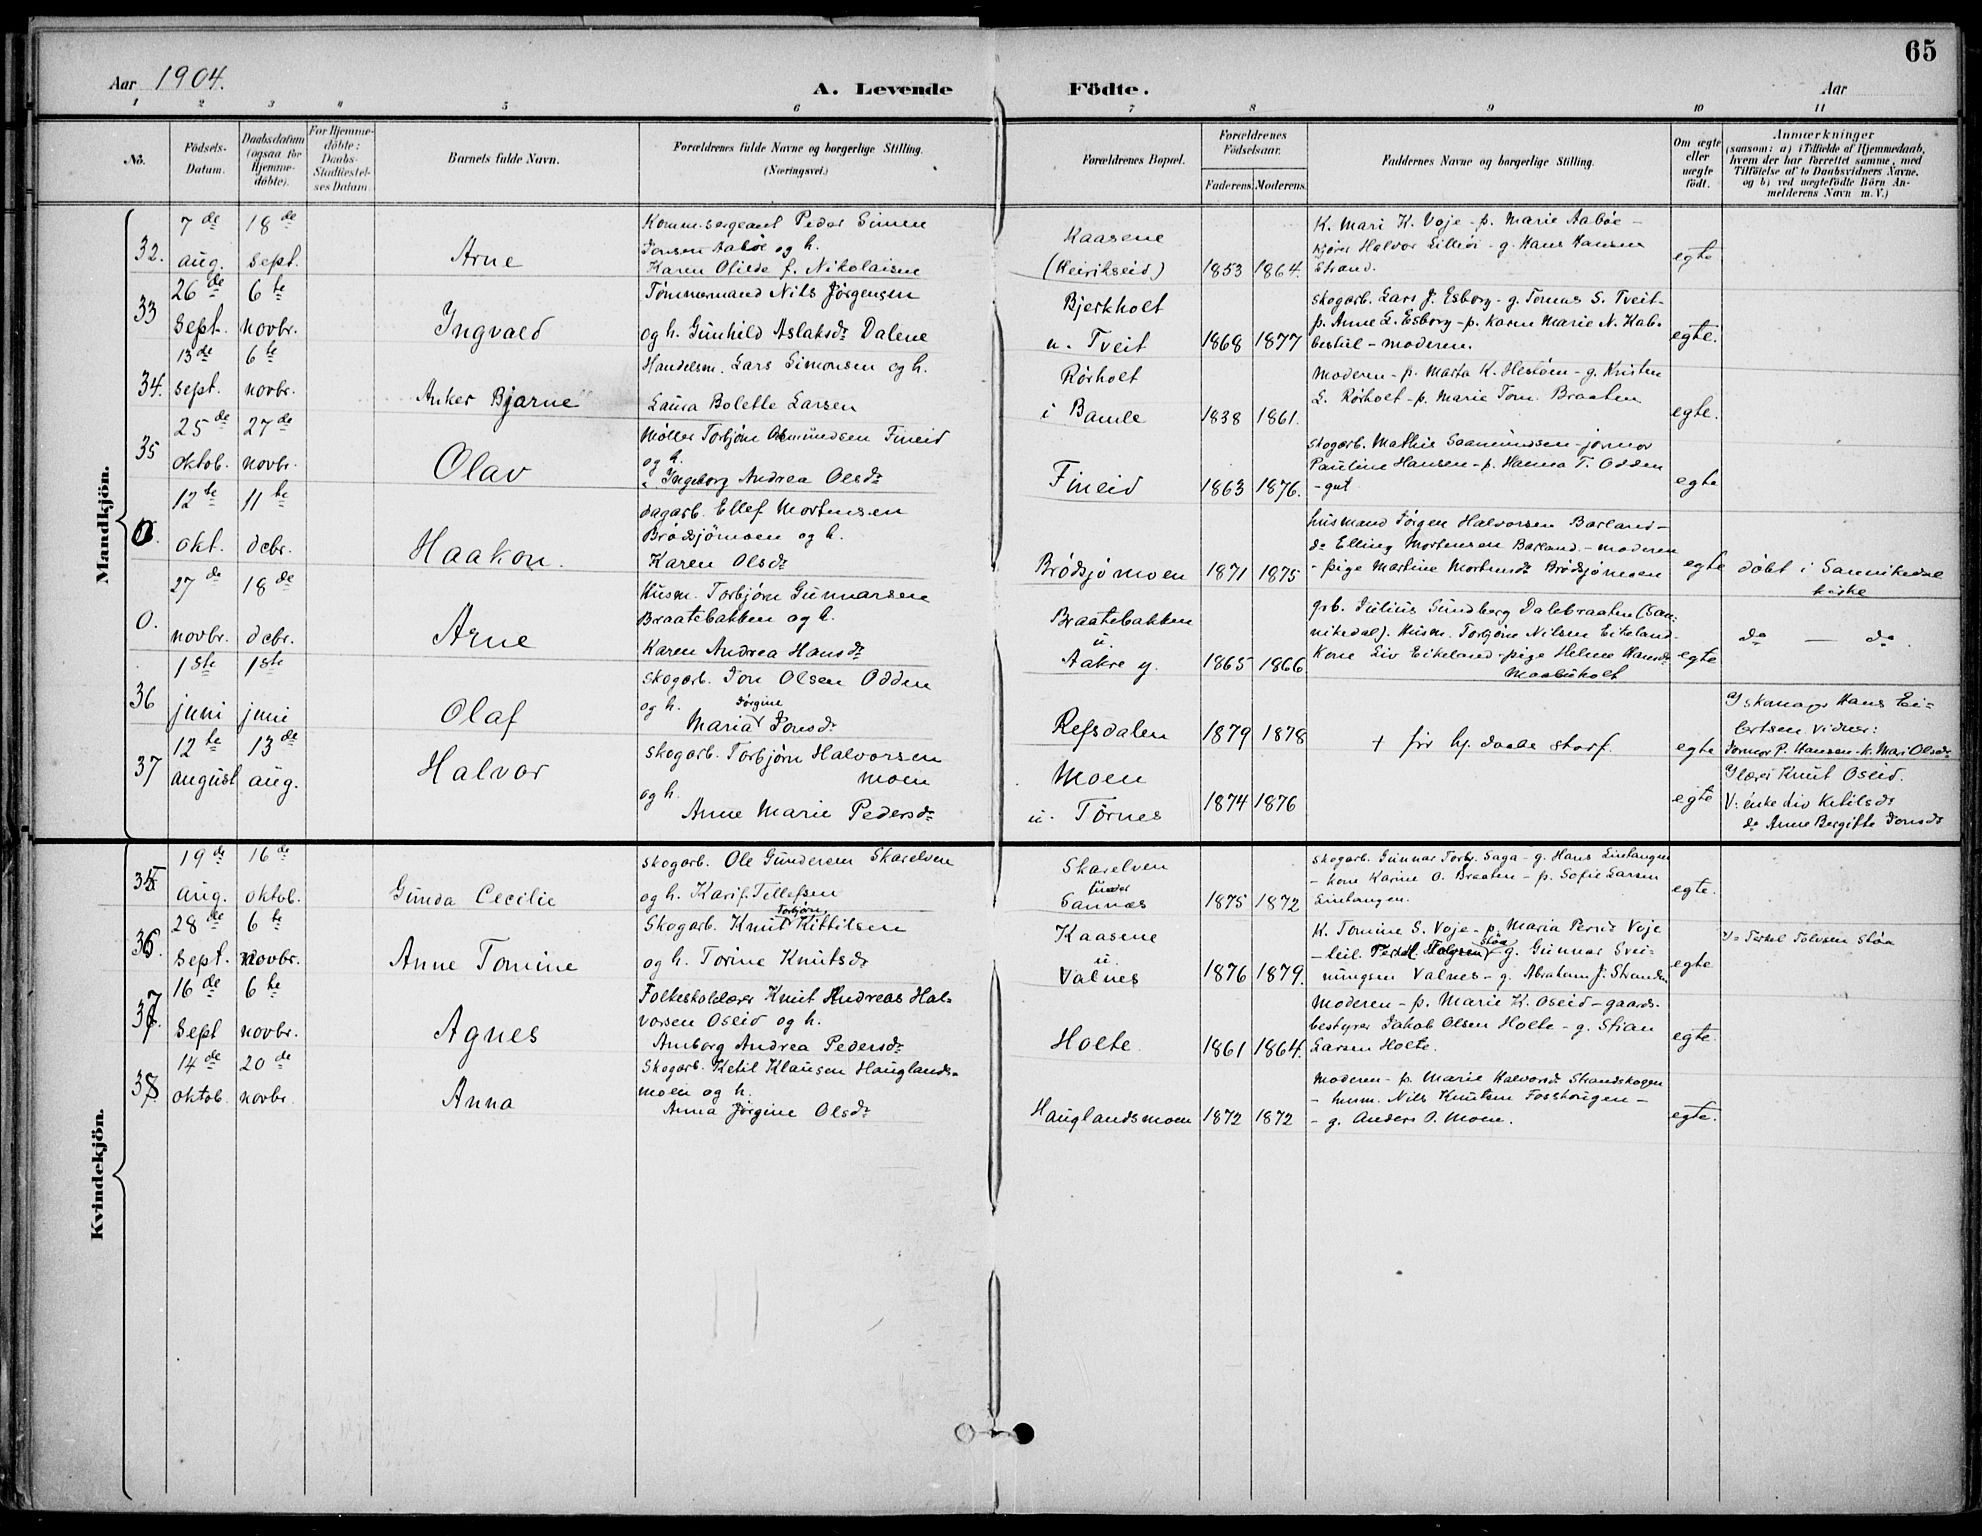 65
Aar 1904.
A. Levende Födte.
Aar
1 2 3 4 5 6 7 8 9 10 11
No.
Födsels-Datum.
Daabsdatum (ogsaa for Hjemme-döbte).
For Hjemme-döbte: Daabs-Stadfæstel-ses Datum.
Barnets fulde Navn.
Forældrenes fulde Navne og borgerlige Stilling. (Næringsvei.)
Forældrenes Bopæl.
Forældrenes Födselsaar.
Faderens. Moderens.
Faddernes Navne og borgerlige Stilling.
Om ægte eller uægte födt.
Anmærkninger
(saasom: a) i Tilfælde af Hjemmedaab, hvem der har forrettet samme, med Tilföielse af to Daabsvidners Navne. og b) ved uægtefödte Börn An-melderens Navn m. V.)
Mandkjön.
32. 7de aug. 18de sept.
Arne
Komm.sergeant Peder Simen
Jonsen Aabøe og h.
Karen Olilde f. Nikolaisen
Kaasene
(Heirikseid)
1853 1864.
K. Mari K. Voje - p. Marie Aabøe -
kjører Halvor Lillioi - g. Hans Hansen
Strand.
egte
33 26de Sept. 6te novbr.
Ingvald
Tømmermand Nils Jørgensen
og h. Gunhild Aslaksdr Dalene
Bjerkholt
u. Tveit
1868 1877
skogarb. Lars J. Esborg - g. Tomas S. Tveit-
p. Anne L. Esborg - p. Karen Marie N. Hab-
bestul - moderen.
egte.
34. 13de sept. 6te novbr.
Anker Bjarne
Handelsm. Lars Simonsen og h.
Laura Bolette Larsen
Rørholt
i Bamle
1838 1861.
Moderen - p. Marta K. Hestøen - g. Kristen
L. Rørholt - p. Marie Tom. Braaten
egte.
35 25de oktob. 27de novbr.
Olav
Møller Torbjørn Osmundsen Fineid
og h.
Ingeborg Andrea Olsdr
Fineid
1863 1876.
skogarb. Mathis Saamundsen - jormor
Pauline Hansen - p. Hanna T. Odden
- gut
egte
0. 12te okt. 11te debr.
Haakon.
dagarb. Ellef Mortensen
Brødsjømoen og h.
Karen Olsdr
Brødsjømoen
1871 1875
husmand Jørgen Halvorsen Barland -
do Elling Mortensen Barland. - moderen
- pige Martine Mortensdr Brødsjømoen
egte
døbt i Sannikedal
kirke
0. 27de novbr. 18de debr.
Arne
Husm. Torbjørn Gunnarsen
Braatebakken og h.
Karen Andrea Hansdr
Braatebakken
u.
Aakre y.
1865 1866
grb. Julius Sundberg Dalebraaten (San-
nikedal). Husm. Torbjørn Nilsen Eikeland.
Kone Liv Eikeland - pige Helene Hansdr
egte
do — do
36 1ste juni 1ste juni
Olaf
skogarb. Jon Olsen Odden
og h. Jørgine
Maria Jonsdr
Refsdalen
1879 1878
+ før hj. daabs stadf.
egte
v/ skomager Hans Ei-
lertsen. Vidner:
Jormor P. Hansen - k. Mari Olsdr
37 12te august 13de aug.
Halvor
skogarb. Torbjørn Halvorsen
Moen
og h.
Anne Marie Pedersdr
Moen
u. Tørnes
1874 1876
egte
v/ Lærer Knut Oseid.
V: enke Liv Ketilsdr
do Anne Bergitte Jonsdr
Kvindekjön.
35 19de aug. 16de oktob.
Gunda Cecilie
skogarb. Ole Gundersen Skarelven
og h. Kari f. Tellefsen
Skarelven
under
Sannæs
1875 1872
skogarb. Gunnar Torbr. Saga - g. Hans Lintangen
- kone Karine O. Braaten - p. Sofie Larsen
Lintangen.
egte.
36 28de Sept. 6te novbr.
Anne Tomine
Skogarb. Knut Torbjørn Kittilsen
og h. Torine Knutsdr
Kaasene
u.
Valnes
1876 1879.
K. Tomine S. Voje - p. Maria Persd Voje
- leil. Terkel Tolvsen Støa - g. Gunnar Svei-
nungsen Valnes - g. Abraham J. Stranden
egte
v/o Terkel Tolvsen Støa
37 16de Sept 6te novbr.
Agnes
Folkeskolelærer Knut Andreas Hal-
vorsen Oseid og h.
Amborg Andrea Pedersdr
Holte
1861 1864.
Moderen - p. Marie K. Oseid - gaards-
bestyrer Jakob Olsen Holte - g. Stian
Larsen Holte.
egte
38 14de oktob. 20de novbr.
Anna
Skogarb. Ketil Klausen Hauglands-
moen og h.
Anna Jørgine Olsdr
Hauglandsmoen
1872 1872
Moderen - p. Marie Halvorsdr Strandskogen
- husm. Nils Knutsen Fosshougen -
- g. Anders O. Moen.
egte.